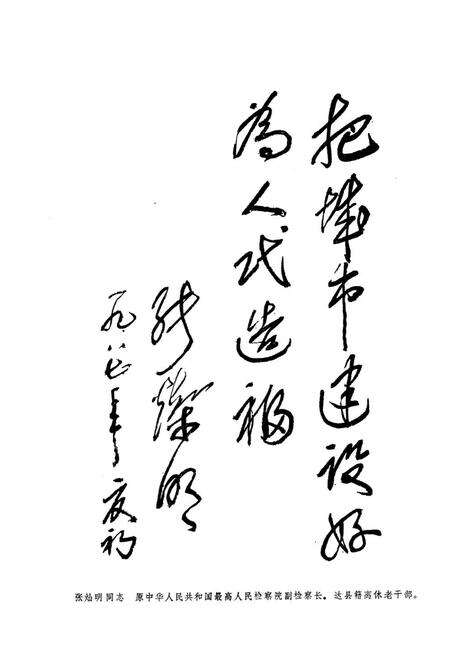 把城市建设好
為人民造福
张燦明
一九八七年夏初
张灿明同志 原中华人民共和国最高人民检察院副检察长。达县籍离休老干部。